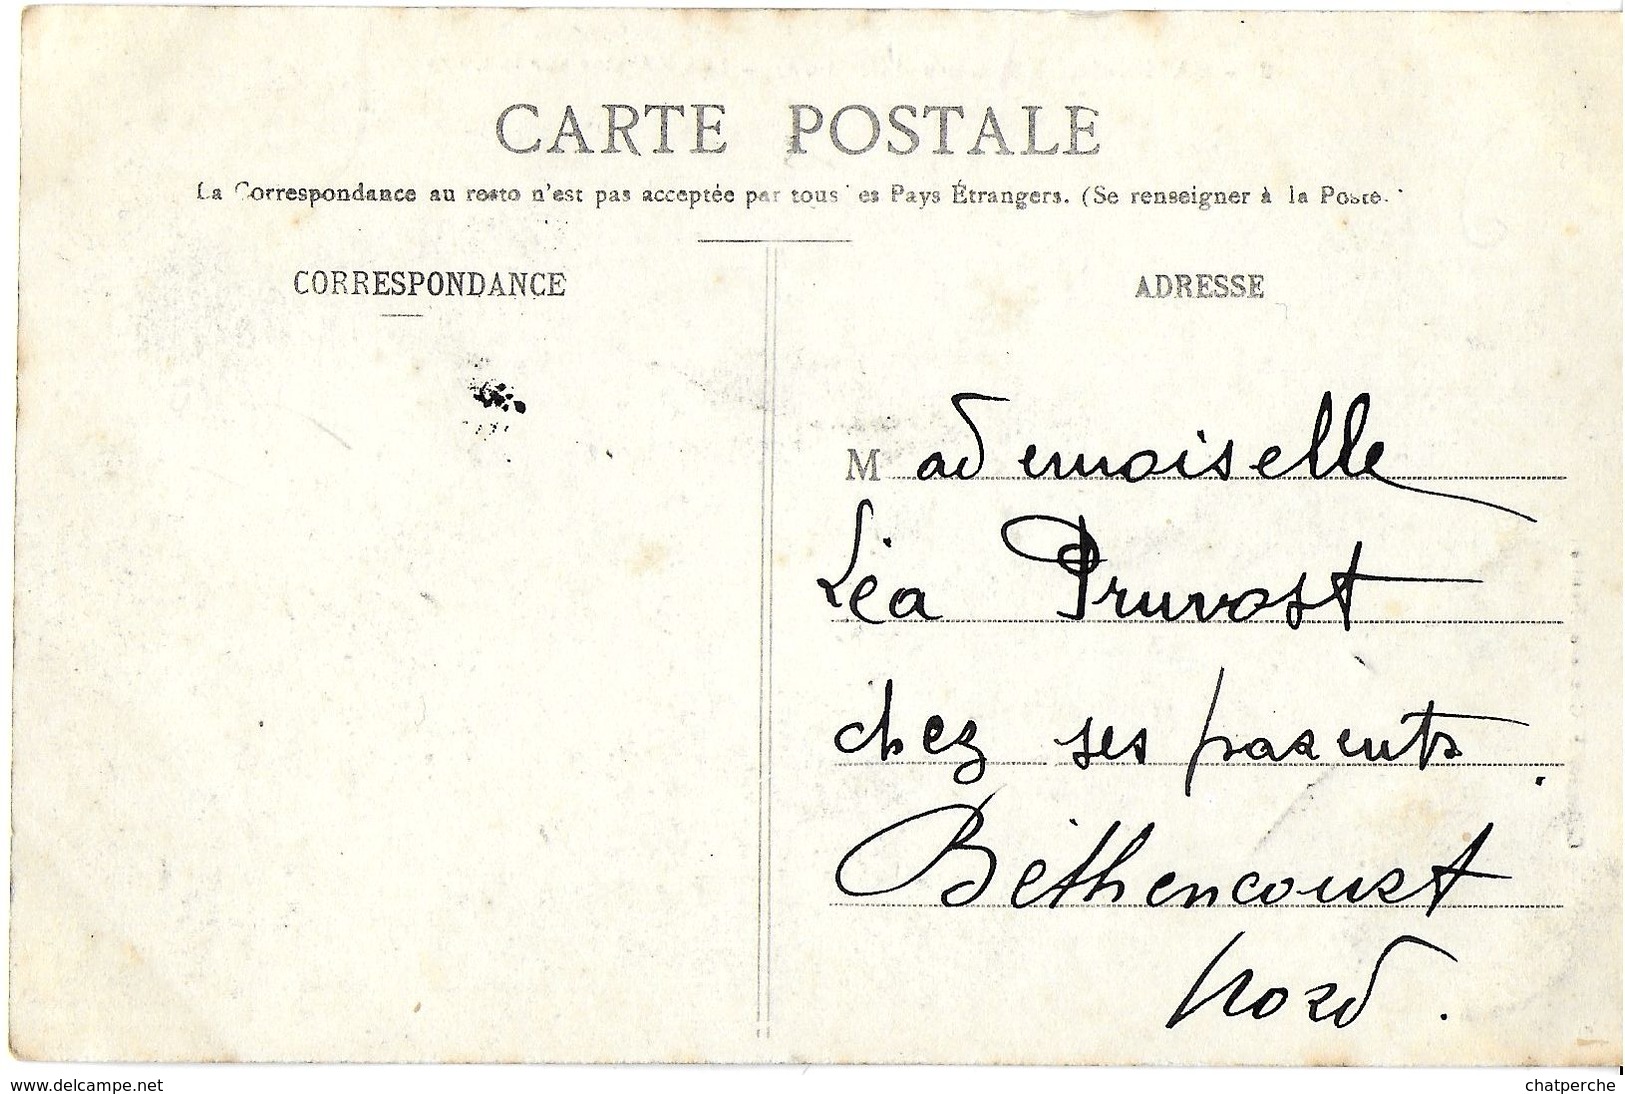 CARTE POSTALE
La Correspondance au resto n'est pas acceptée par tous les Pays Étrangers. (Se renseigner à la Poste.
CORRESPONDANCE
ADRESSE
Mademoiselle
Léa Pruvost
chez ses parents.
Béthencourt
Nord.
www.delcampe.net
chatperche